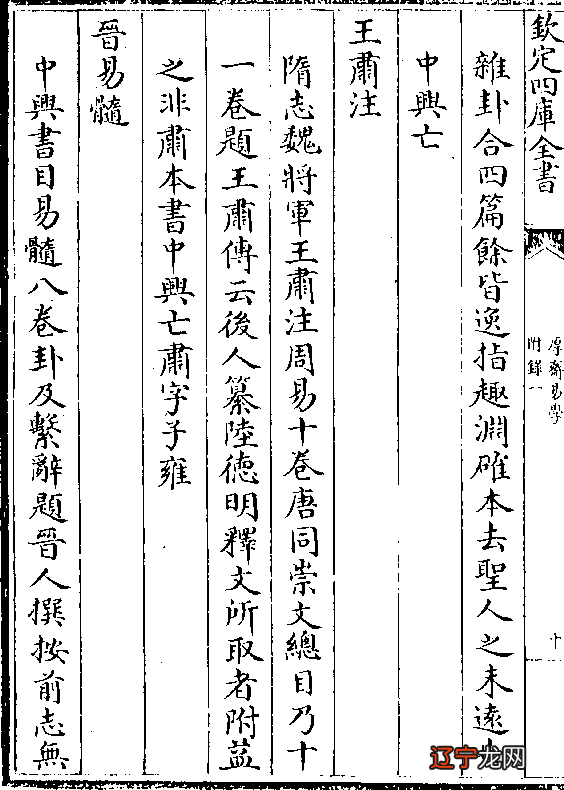 欽定四庫全書
厚齋易學
附錄一
十
雜卦合四篇餘皆逸指趣淵確本去聖人之未遠
中興亡
王肅注
隋志魏將軍王肅注周易十卷唐同崇文總目乃十
一卷題王肅傳云後人纂陸德明釋文所取者附益
之非肅本書中興亡肅字子雍
晉易髓
中興書目易髓八卷卦及繫辭題晉人撰按前志無
辽宁龙网